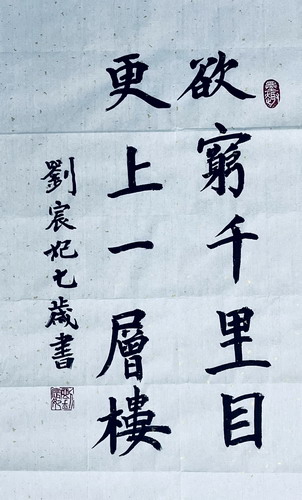 欲窮千里目
更上一層樓
劉宸妃七歲書